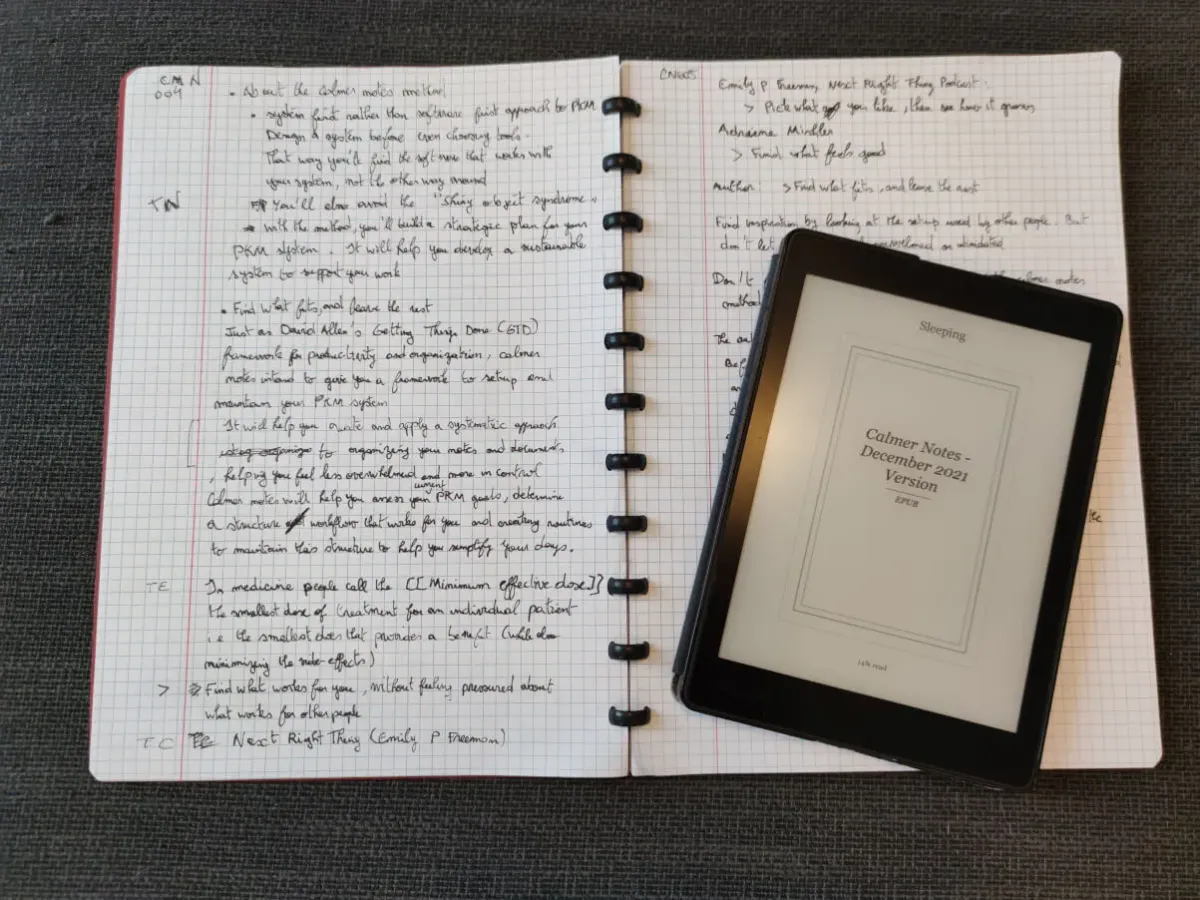 CMN
004
• About the calmer notes method
• System first rather than software first approach to PKM
Design a system before even choosing tools.
That way you'll find the software that works with
your system, not the other way around
TN
You'll also avoid the "Shiny object syndrome"
→ With the method, you'll build a strategic plan for your
PKM system. It will help you develop a sustainable
system to support your work
• Find what fits, and leave the rest
Just as David Allen's Getting Things Done (GTD)
framework for productivity and organization, calmer
notes intend to give you a framework to setup and
maintain your PKM system
It will help you create and apply a systematic approach
to organizing your notes and documents
, helping you feel less overwhelmed and more in control
current
Calmer notes will help you assess your PKM goals, determine
a structure workflow that works for you and creating routines
to maintain this structure to help you simplify your days.
TE
In medicine people call the [[Minimum effective dose]]
the smallest dose of treatment for an individual patient
i.e the smallest does that provides a benefit (while also
minimizing the side-effects)
> Find what works for you, without feeling pressured about
what works for other people
TC Next Right Thing (Emily P Freeman)
CN005
Emily P Freeman, Next Right Thing Podcast:
> Pick what you like, then see how it grows
Adriene Mishler
> Find what feels good
Author: > Find what fits, and leave the rest
Find inspiration by looking at the setup used by other people. But
don't let overwhelmed or
Don't calmer notes
method
The
Bef
Sleeping
Calmer Notes -
December 2021
Version
EPUB
14% read